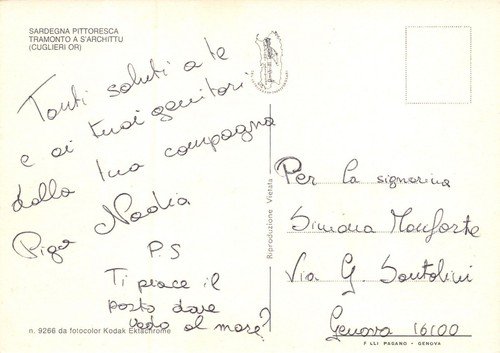 SARDEGNA PITTORESCA
TRAMONTO A S'ARCHITTU
(CUGLIERI OR)
Tanti saluti a te
e ai tuoi genitori
dalla tua compagna
Piga Nadia
P.S
Ti piace il
posto dove
vado al mare?
n. 9266 da fotocolor Kodak Ektachrome
Riproduzione Vietata
Per la signorina
Simona Monforte
Via G. Santolini
Genova 16100
F.LLI PAGANO - GENOVA